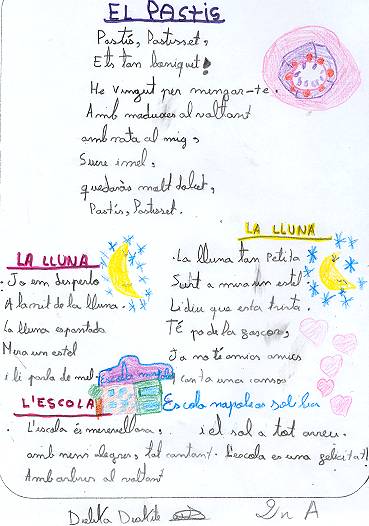 EL PASTIS
Pastís, Pastisset,
Ets tan boniquet!
He vingut per mengar-te.
Amb maduixes al voltant
amb nata al mig,
Sucre i mel,
quedaràs molt dolcet,
Pastís, Pastisset.
LA LLUNA
Jo em desperto
A la nit de la lluna.
La lluna espantada
Mira un estel
i li parla de mel.
LA LLUNA
La lluna tan Petita
Surt a mirar un estel
Li diu que esta trista.
TÉ po de la foscor,
Ja no té amics amics
canta unes cansons
L'ESCOLA
Escola
L'escola és meravellosa,
amb nens alegres, tot cantant.
Amb arbres al voltant
i el sol a tot arreu.
L'escola es una felicitat!
2n A